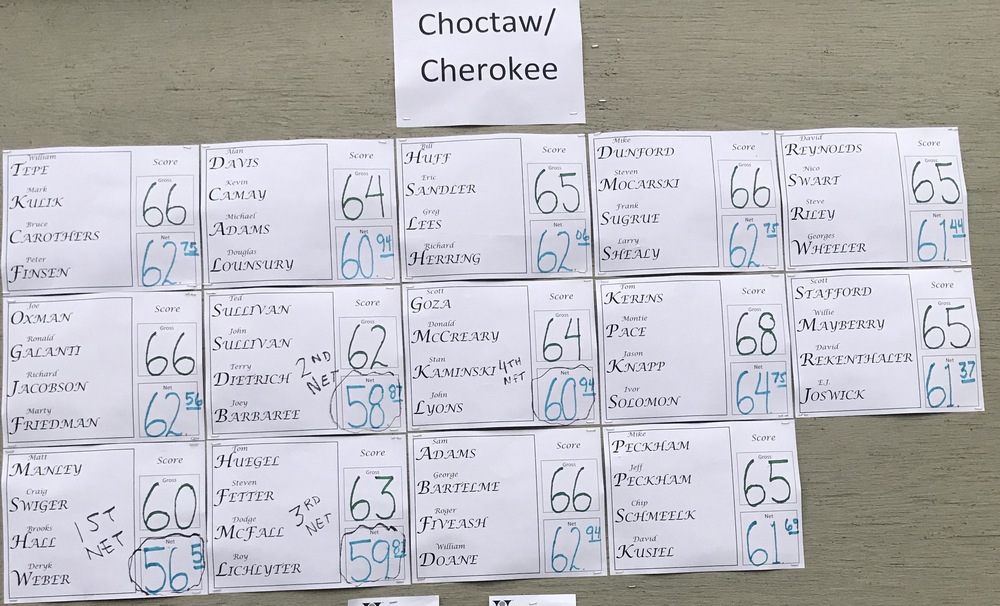 Choctaw/
Cherokee
William
TEPE
Mark
KULIK
Bruce
CAROTHERS
Peter
FINSEN
Score
Gross
66
Net
62 75
Alan
DAVIS
Kevin
CAMAY
Michael
ADAMS
Douglas
LOUNSURY
Score
Gross
64
Net
60 94
Bill
HUFF
Eric
SANDLER
Greg
LEES
Richard
HERRING
Score
Gross
65
Net
62 06
Mike
DUNFORD
Steven
MOCARSKI
Frank
SUGRUE
Larry
SHEALY
Score
Gross
66
Net
62 75
David
REYNOLDS
Nico
SWART
Steve
RILEY
Georges
WHEELER
Score
Gross
65
Net
61 44
Joe
OXMAN
Ronald
GALANTI
Richard
JACOBSON
Marty
FRIEDMAN
Score
Gross
66
Net
62 56
Ted
SULLIVAN
John
SULLIVAN
Terry
DIETRICH
Joey
BARBAREE
2ND
NET
Score
Gross
62
Net
58 81
Scott
GOZA
Donald
MCCREARY
Stan
KAMINSKI
John
LYONS
4TH
NET
Score
Gross
64
Net
60 94
Tom
KERINS
Montie
PACE
Jason
KNAPP
Ivor
SOLOMON
Score
Gross
68
Net
64 75
Scott
STAFFORD
Willie
MAYBERRY
David
REKENTHALER
E.J.
JOSWICK
Score
Gross
65
Net
61 37
Matt
MANLEY
Craig
SWIGER
Brooks
HALL
Deryk
WEBER
1ST
NET
Score
Gross
60
Net
56 5
Tom
HUEGEL
Steven
FETTER
Dodge
MCFALL
Roy
LICHLYTER
3RD
NET
Score
Gross
63
Net
59 81
Sam
ADAMS
George
BARTELME
Roger
FIVEASH
William
DOANE
Score
Gross
66
Net
62 94
Mike
PECKHAM
Jeff
PECKHAM
Chip
SCHMEELK
David
KUSIEL
Score
Gross
65
Net
61 69